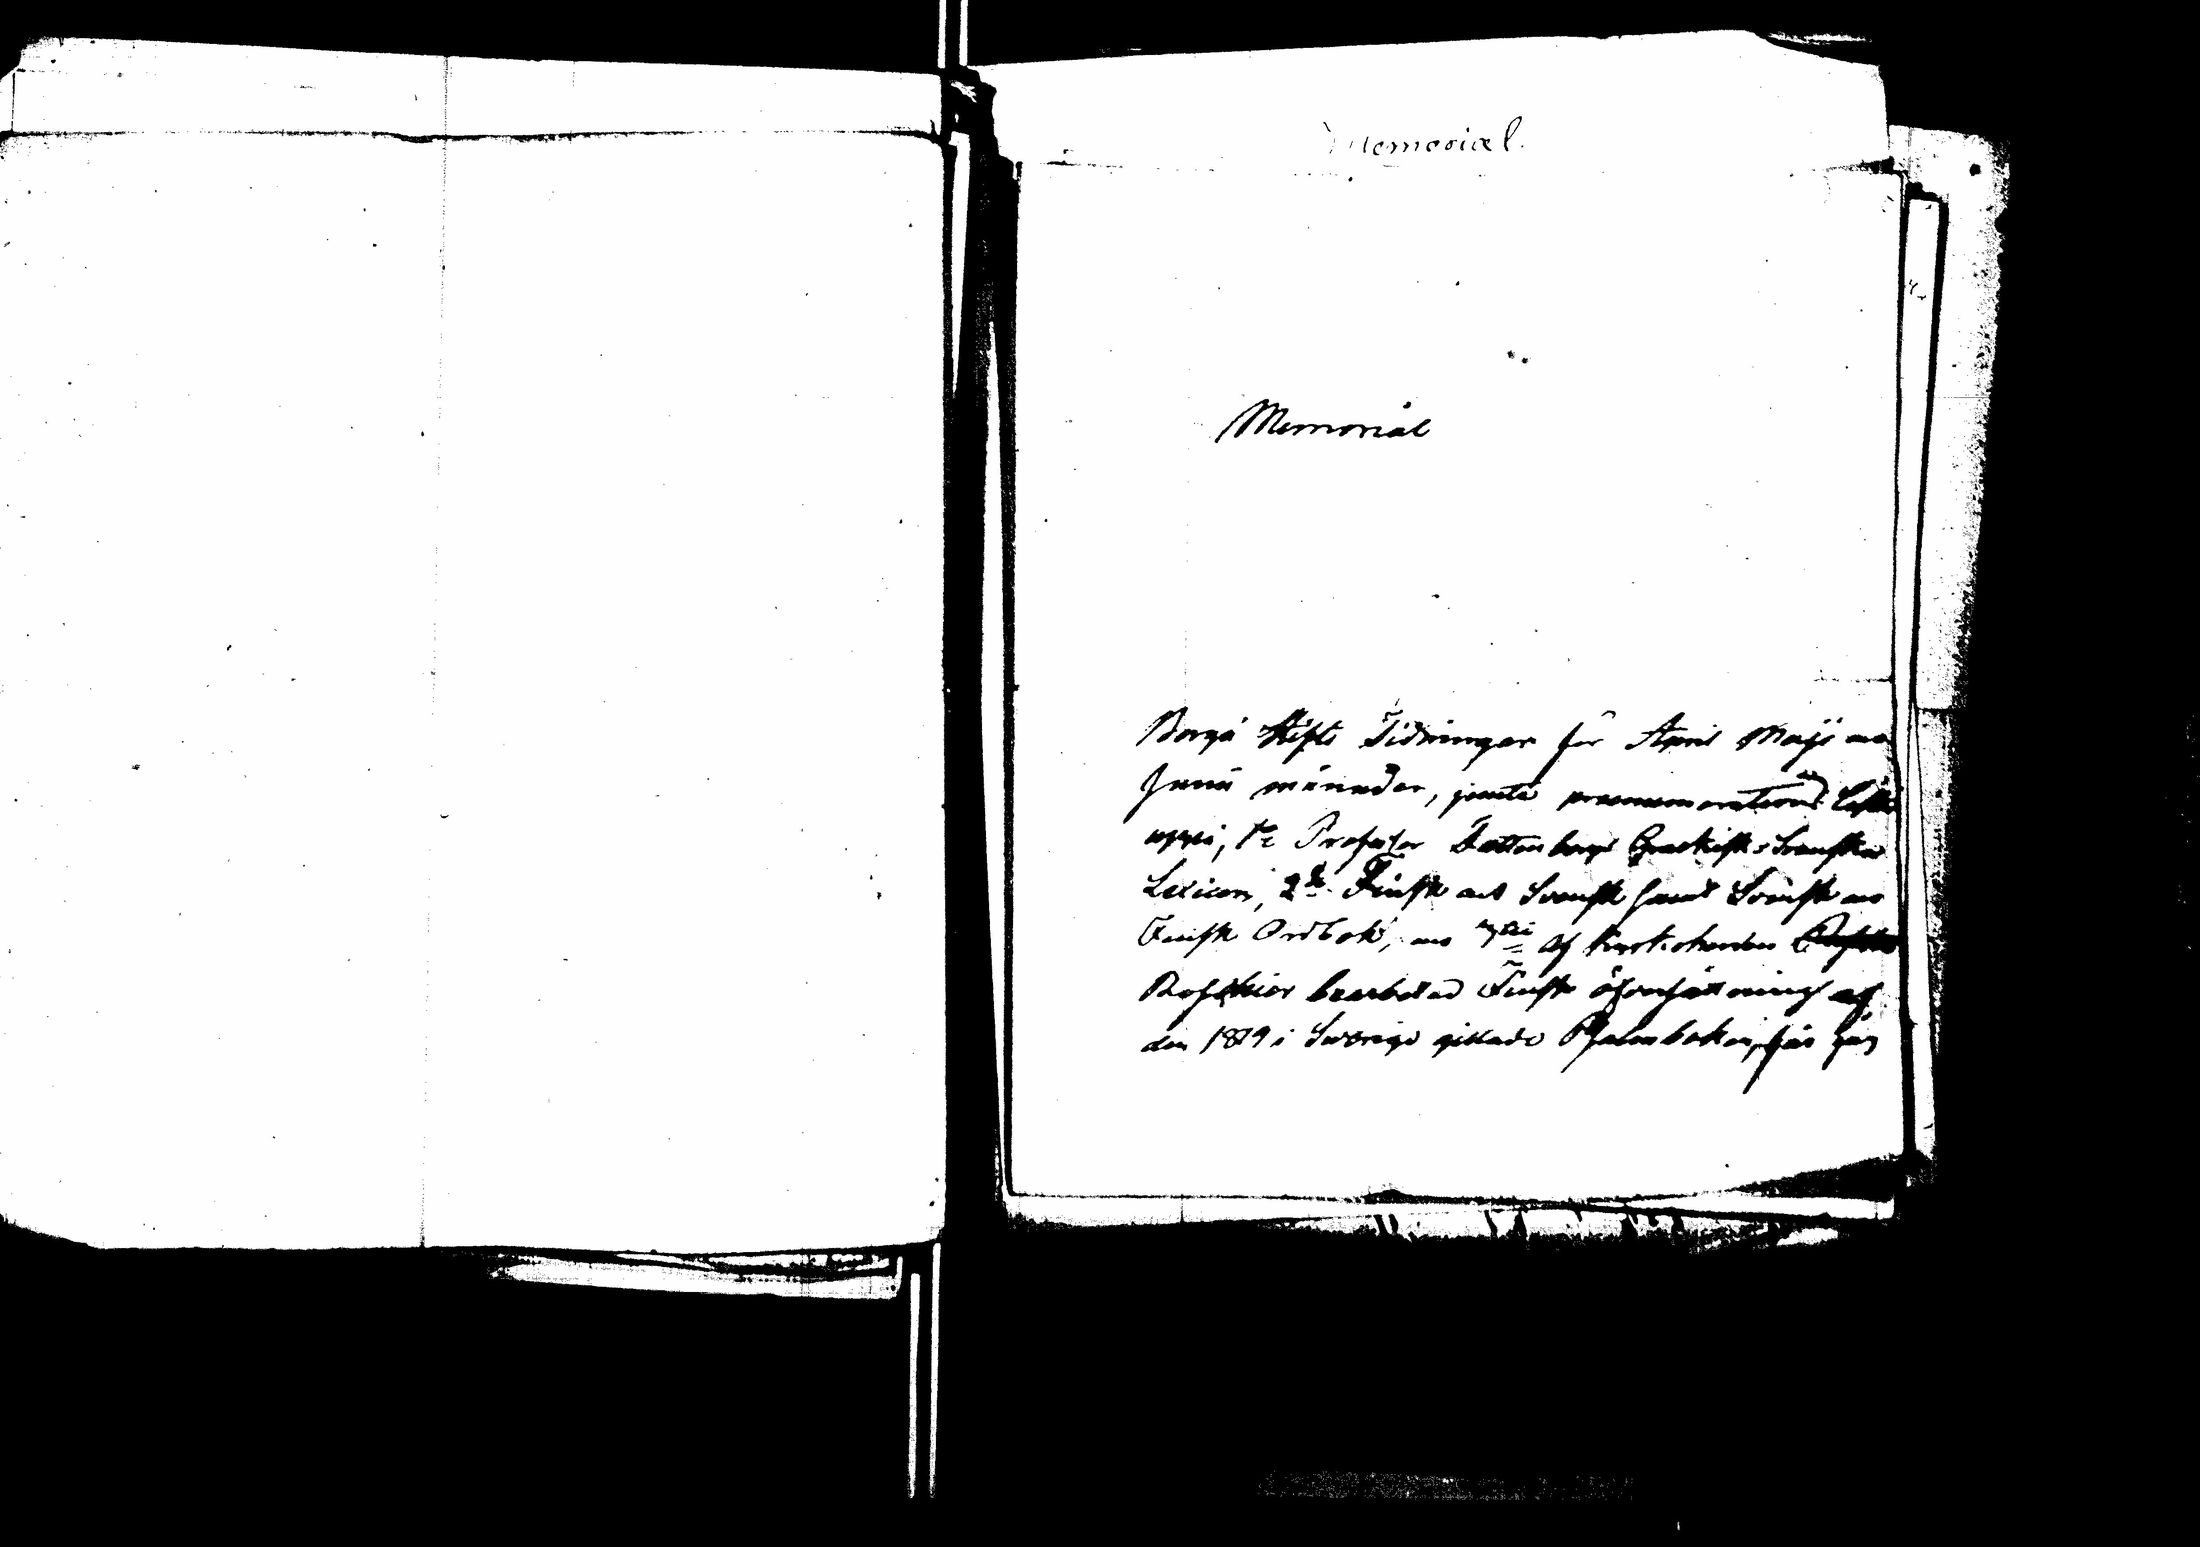 Memorial.
Memorial
Borgå Stifts Tidningar för April Maji
Junii månader, jemte praenumerations
1o Professor Grekiskt Svenska
Lexicon, 2do Finsk och Svensk samt Svensk och
Finsk Ordbok, och af Kyrkoherden
bearbetad Finsk öfversättning af
den 1819 i Sverige gillade Psalmboken, får jag